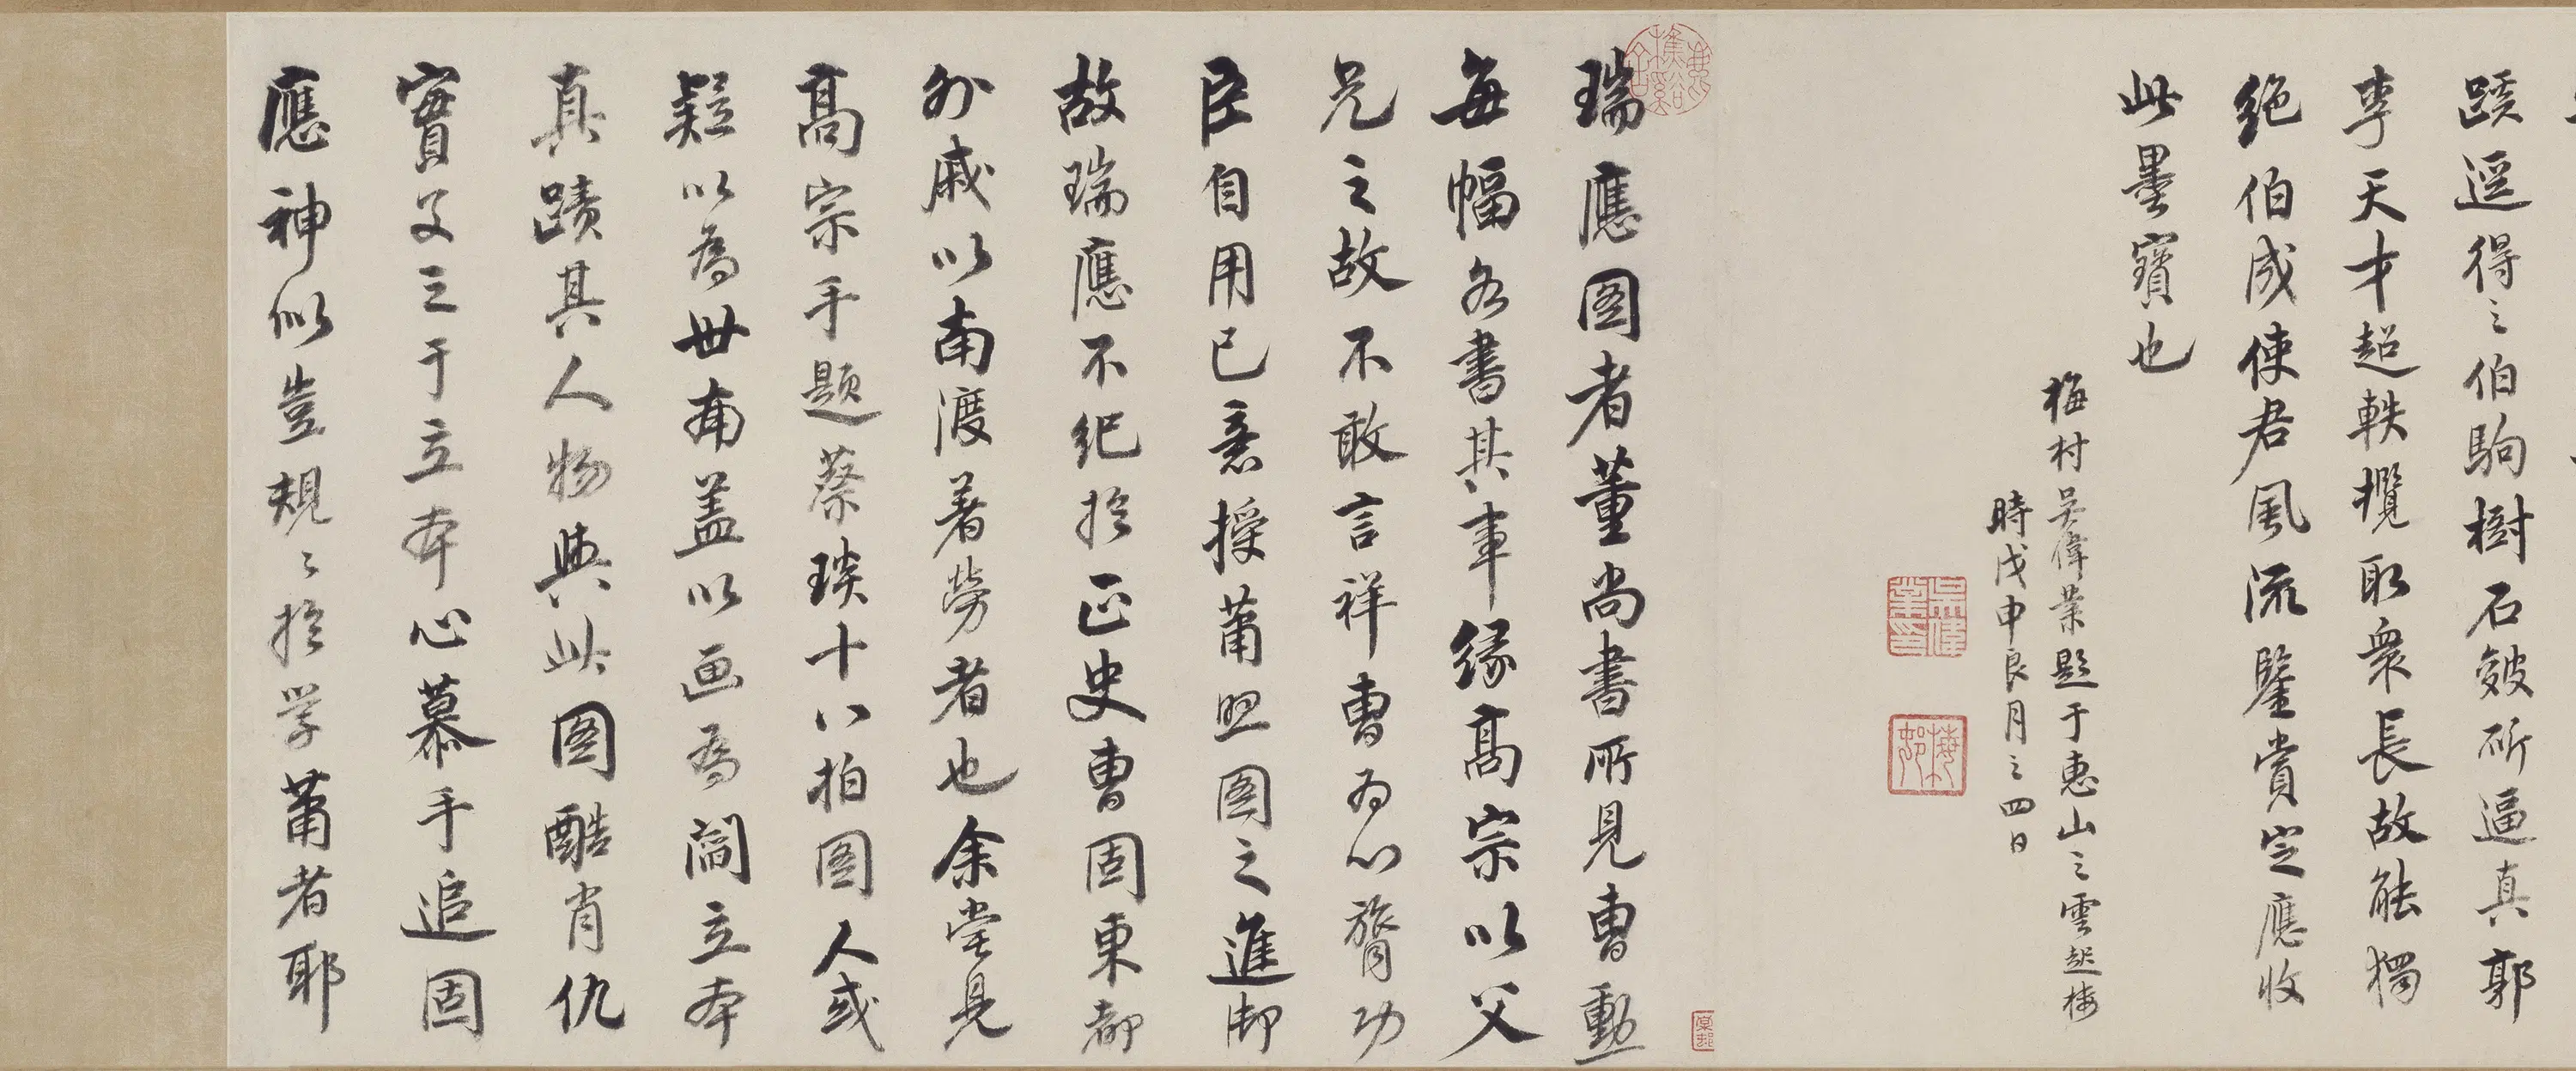 蹟遥得之伯駒樹石皴斫逼真郭
李天才超軼攬取衆長故能獨
絶伯成使君風流鑒賞定應收
此墨寶也
梅村吴偉業題于惠山之雲起樓
時戊申良月之四日
瑞應图者董尚書所見曹勳
每幅各書其事缘高宗以父
兄之故不敢言祥曹為心膂功
臣自用己意授蕭照图之進御
故瑞應不紀扵正史曹固東都
外戚以南渡著勞者也余嘗見
髙宗手題蔡琰十八拍图人或
疑以為世南盖以画為閻立本
真蹟其人物與此图酷肖仇
實父三于立本心慕手追固
應神似豈規〻扵学蕭者耶